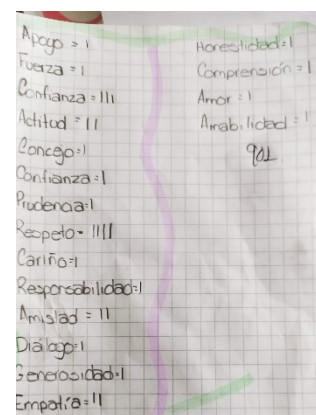 Apogo = 1
Fuerza = 1
Confianza = 111
Actitud = 11
Concejo = 1
Confianza = 1
Prudencia = 1
Respeto = 1111
Cariño = 1
Responsabilidad = 1
Amistad = 11
Diálogo = 1
Generosidad = 1
Empatía = 11
Horestidad = 1
Comprensión = 1
Amor = 1
Amabilidad = 1
901